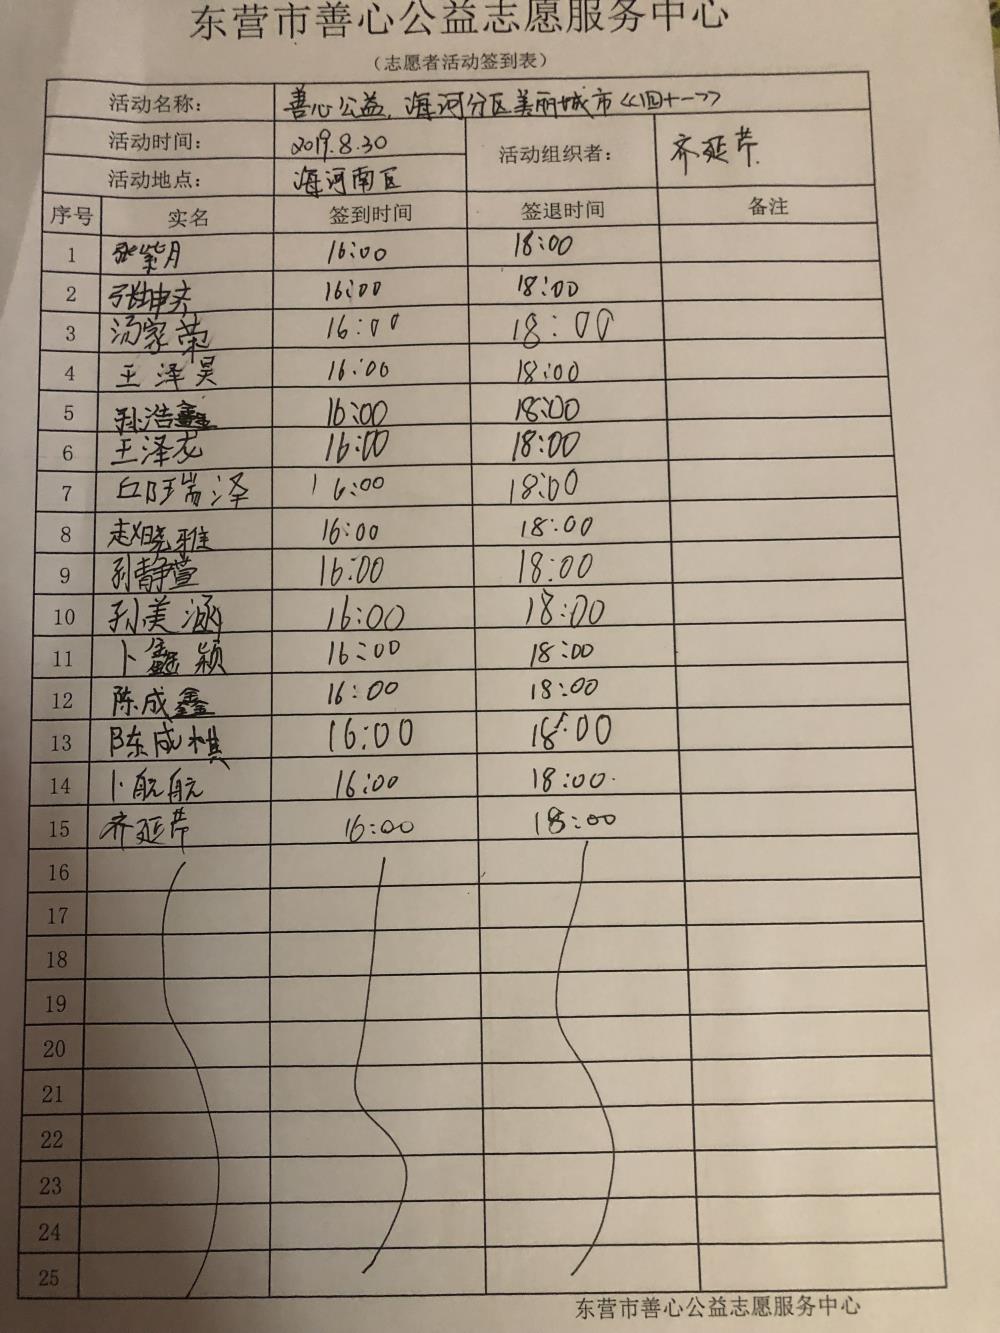 东营市善心公益志愿服务中心
（志愿者活动签到表）
活动名称： 善心公益.海河分区美丽城市《四十一》
活动时间： 2019.8.30 活动组织者： 齐延芹
活动地点： 海河南区
序号 实名 签到时间 签退时间 备注
1 张紫月 16:00 18:00
2 张坤齐 16:00 18:00
3 汤家荣 16:00 18:00
4 王泽昊 16:00 18:00
5 孙浩鑫 16:00 18:00
6 王泽龙 16:00 18:00
7 瑞泽 16:00 18:00
8 赵晓雅 16:00 18:00
9 孙静萱 16:00 18:00
10 孙美涵 16:00 18:00
11 卜鑫颖 16:00 18:00
12 陈成鑫 16:00 18:00
13 陈成棋 16:00 18:00
14 卜航航 16:00 18:00
15 齐延芹 16:00 18:00
16
17
18
19
20
21
22
23
24
25
东营市善心公益志愿服务中心